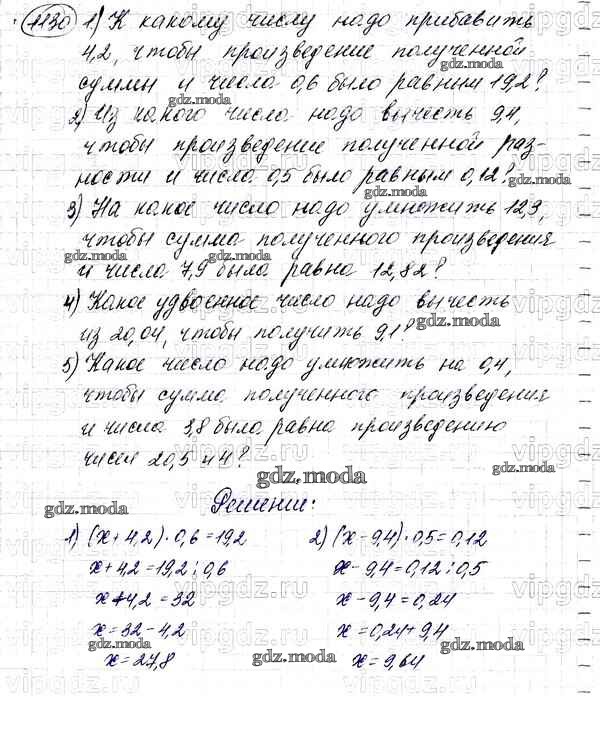 1130 1) К какому числу надо прибавить
4,2, чтобы произведение полученной
суммы и числа 0,6 было равным 19,2?
2) Из какого числа надо вычесть 9,4,
чтобы произведение полученной раз-
ности и числа 0,5 было равным 0,12?
3) На какое число надо умножить 12,3,
чтобы сумма полученного произведения
и числа 7,9 была равна 12,82?
4) Какое удвоенное число надо вычесть
из 20,04, чтобы получить 9,1?
5) Какое число надо умножить на 0,4,
чтобы сумма полученного произведения
и числа 3,8 была равна произведению
чисел 20,5 и 4?
gdz.moda
Решение:
1) (x+4,2)·0,6=19,2
x+4,2=19,2:0,6
x+4,2=32
x=32-4,2
x=27,8
2) (x-9,4)·0,5=0,12
x-9,4=0,12:0,5
x-9,4=0,24
x=0,24+9,4
x=9,64
vipgdz.ru